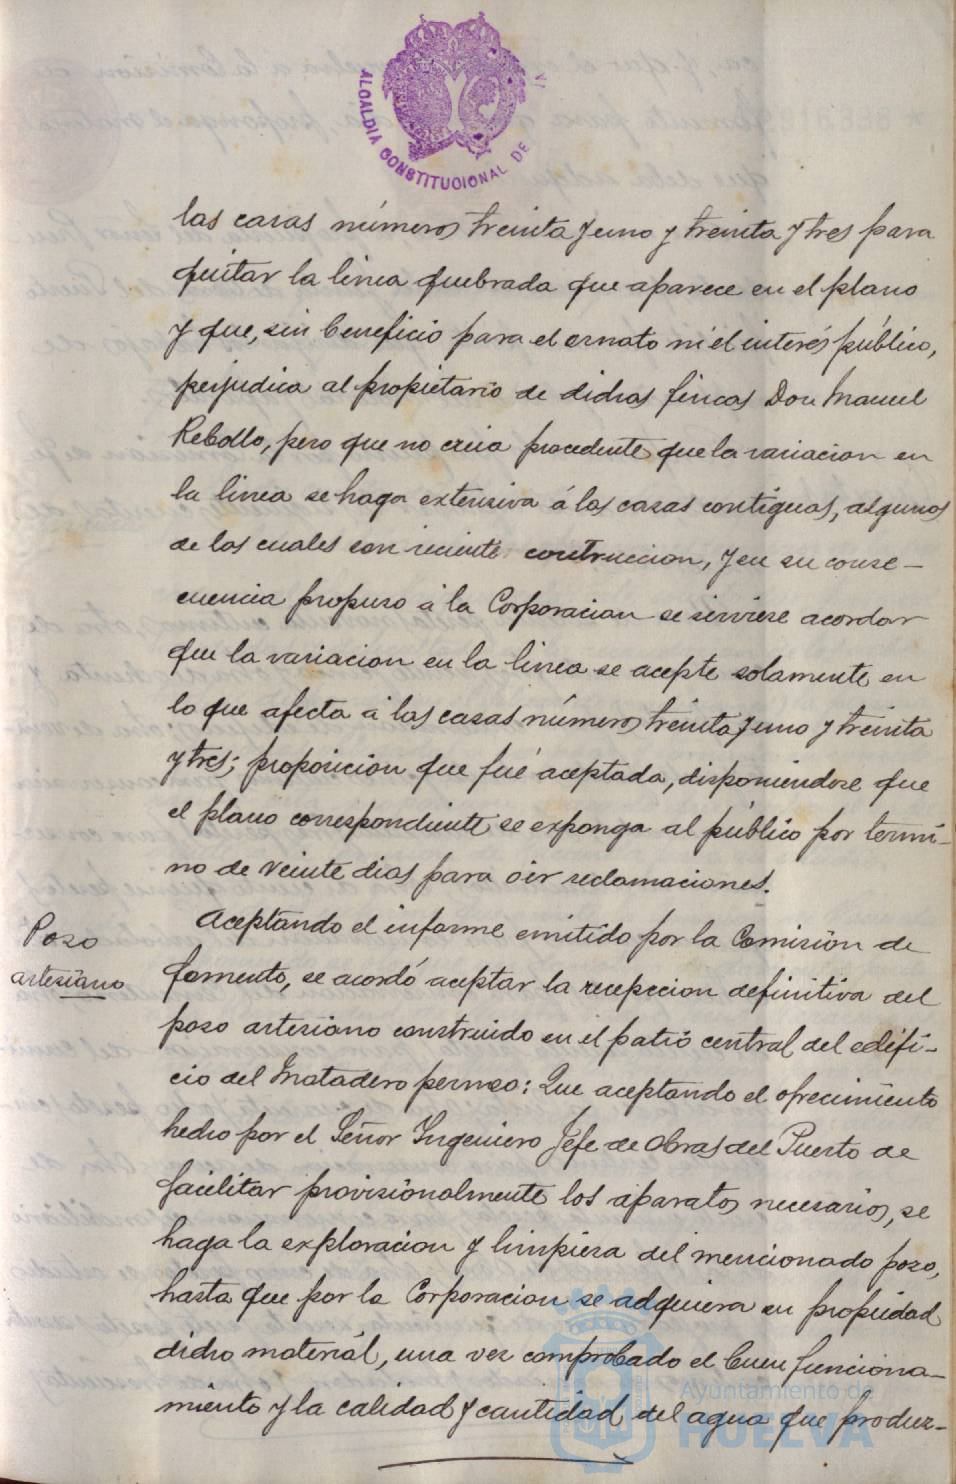 ALCALDIA CONSTITUCIONAL DE
las casas números treinta y uno y treinta y tres para
quitar la linea quebrada que aparece en el plano
y que, sin beneficio para el ornato ni el interés público,
perjudica al propietario de dichas fincas Don Manuel
Rebollo, pero que no creia procedente que la variacion en
la linea se haga extensiva á las casas contiguas, algunas
de las cuales son reciente contruccion, y en su conse-
cuencia propuso á la Corporacion se sirviese acordar
que la variacion en la linea se acepte solamente en
lo que afecta á las casas números treinta y uno y treinta
y tres; proposicion que fué aceptada, disponiendose que
el plano correspondiente se exponga al público por termi-
no de veinte dias para oir reclamaciones.
Poso
artesiano
Aceptando el informe emitido por la Comisión de
fomento, se acordó aceptar la recepccion definitiva del
poso artesiano construido en el patio central del edifi-
cio del Matadero pernso: Que aceptando el ofrecimiento
hecho por el Señor Ingeniero Jefe de Obras del Puerto de
facilitar provisionalmente los aparatos necesarios, se
haga la exploracion y limpiesa del mencionado poso,
hasta que por la Corporacion se adquiera en propiedad
dicho material, una ves comprobado el buen funciona-
miento y la calidad y cantidad del agua que produz-
Ayuntamiento de
HUELVA